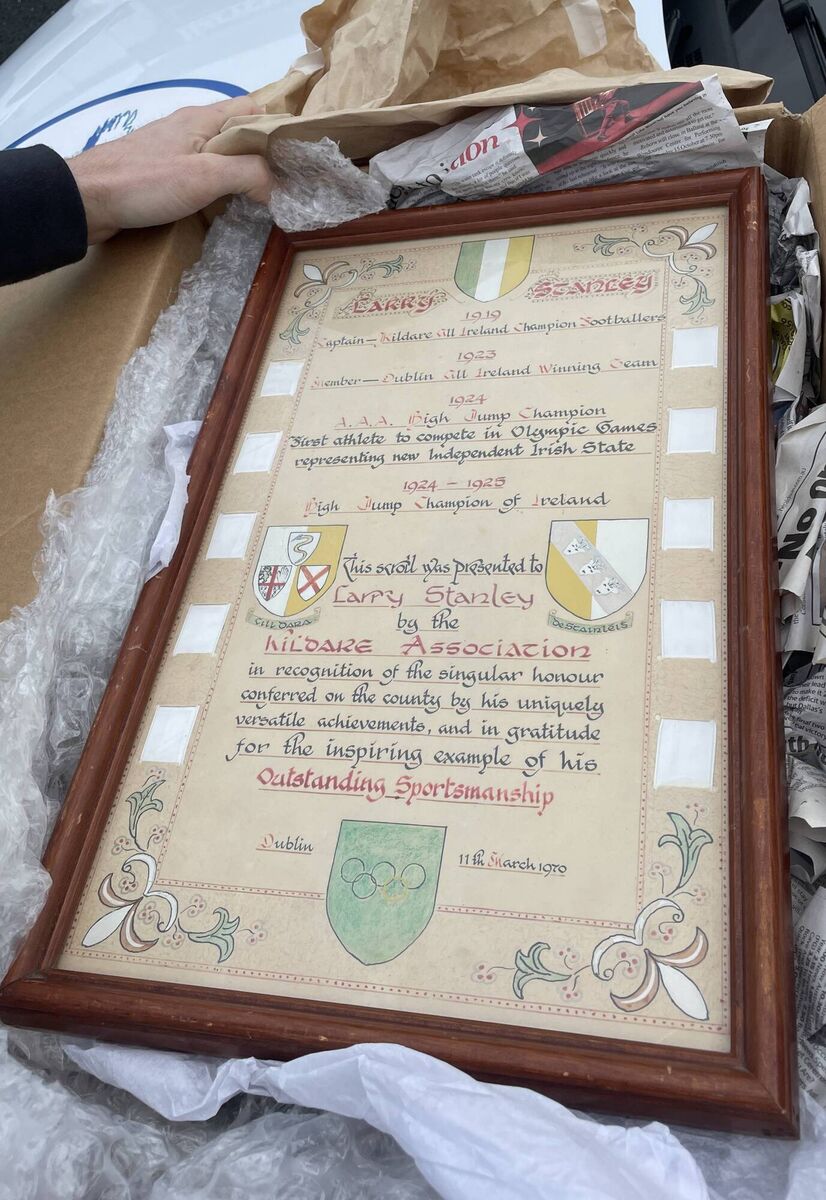 LARRY STANLEY
1919
Captain — Kildare All Ireland Champion Footballers
1923
Member — Dublin All Ireland Winning Team
1924
A.A.A. High Jump Champion
First athlete to compete in Olympic Games
representing new Independent Irish State
1924 – 1925
High Jump Champion of Ireland
This scroll was presented to
Larry Stanley
by the
CILL DARA
deSTAINLEIS
KILDARE ASSOCIATION
in recognition of the singular honour
conferred on the county by his uniquely
versatile achievements, and in gratitude
for the inspiring example of his
Outstanding Sportsmanship
Dublin
11th March 1970